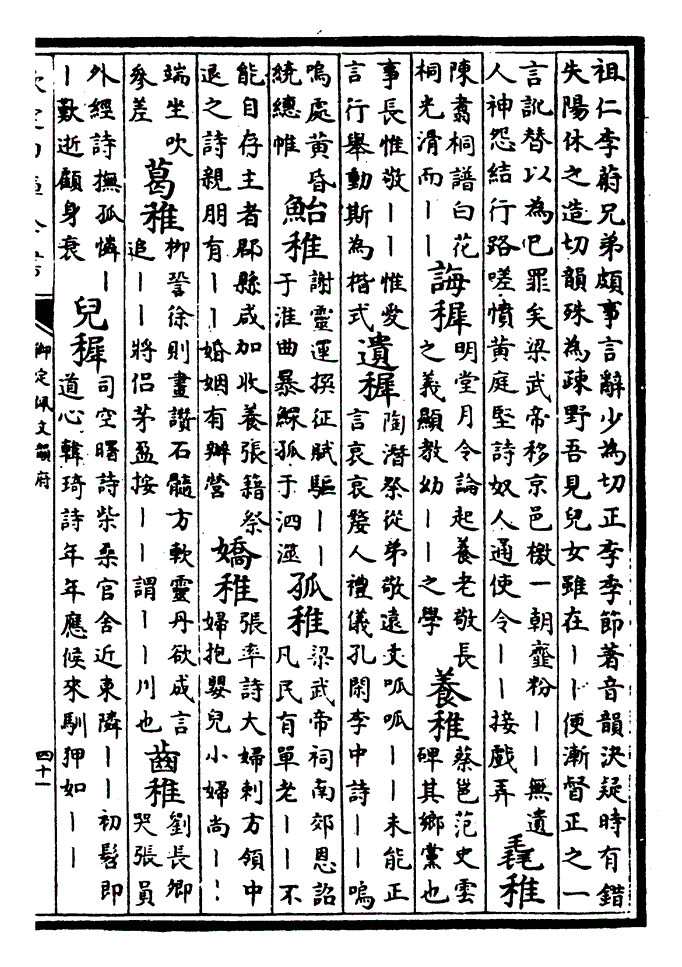 祖仁李蔚兄弟頗事言辭少為切正李季節著音韻決疑時有錯
失陽休之造切韻殊為疎野吾見兒女雖在丨丨便漸督正之一
言訛替以為己罪矣梁武帝移京邑檄一朝虀粉丨丨無遺
人神怨結行路嗟憤黄庭堅詩奴人通使令丨丨接戲弄
毳稚
陳翥桐譜白花
桐光滑而丨丨
誨穉
明堂月令論起養老敬長
之義顯教幼丨丨之學
養稚
蔡邕范史雲
碑其鄉黨也
事長惟敬丨丨惟愛
言行舉動斯為楷式
遺穉
陶潛祭從弟敬遠文呱呱丨丨未能正
言哀哀嫠人禮儀孔閑李中詩丨丨嗚
嗚處黄昏
繞繐帷
鮐稚
謝靈運撰征賦驅丨丨
于淮曲暴鰥孤于泗澨
孤稚
梁武帝祠南郊恩詔
凡民有單老丨丨不
能自存主者郡縣咸加收養張籍祭
退之詩親朋有丨丨婚姻有辦營
嬌稚
張率詩大婦刺方領中
婦抱嬰兒小婦尚丨丨
端坐吹
參差
葛稚
柳䛒徐則畫讚石髓方軟靈丹欲成言
追丨丨將侣茅盈按丨丨謂丨丨川也
齒稚
劉長卿
哭張員
外經詩撫孤憐丨
丨歎逝顧身衰
兒穉
司空曙詩柴桑官舍近東隣丨丨初髫即
道心韓琦詩年年應候來馴狎如丨丨
御定佩文韻府
四十一